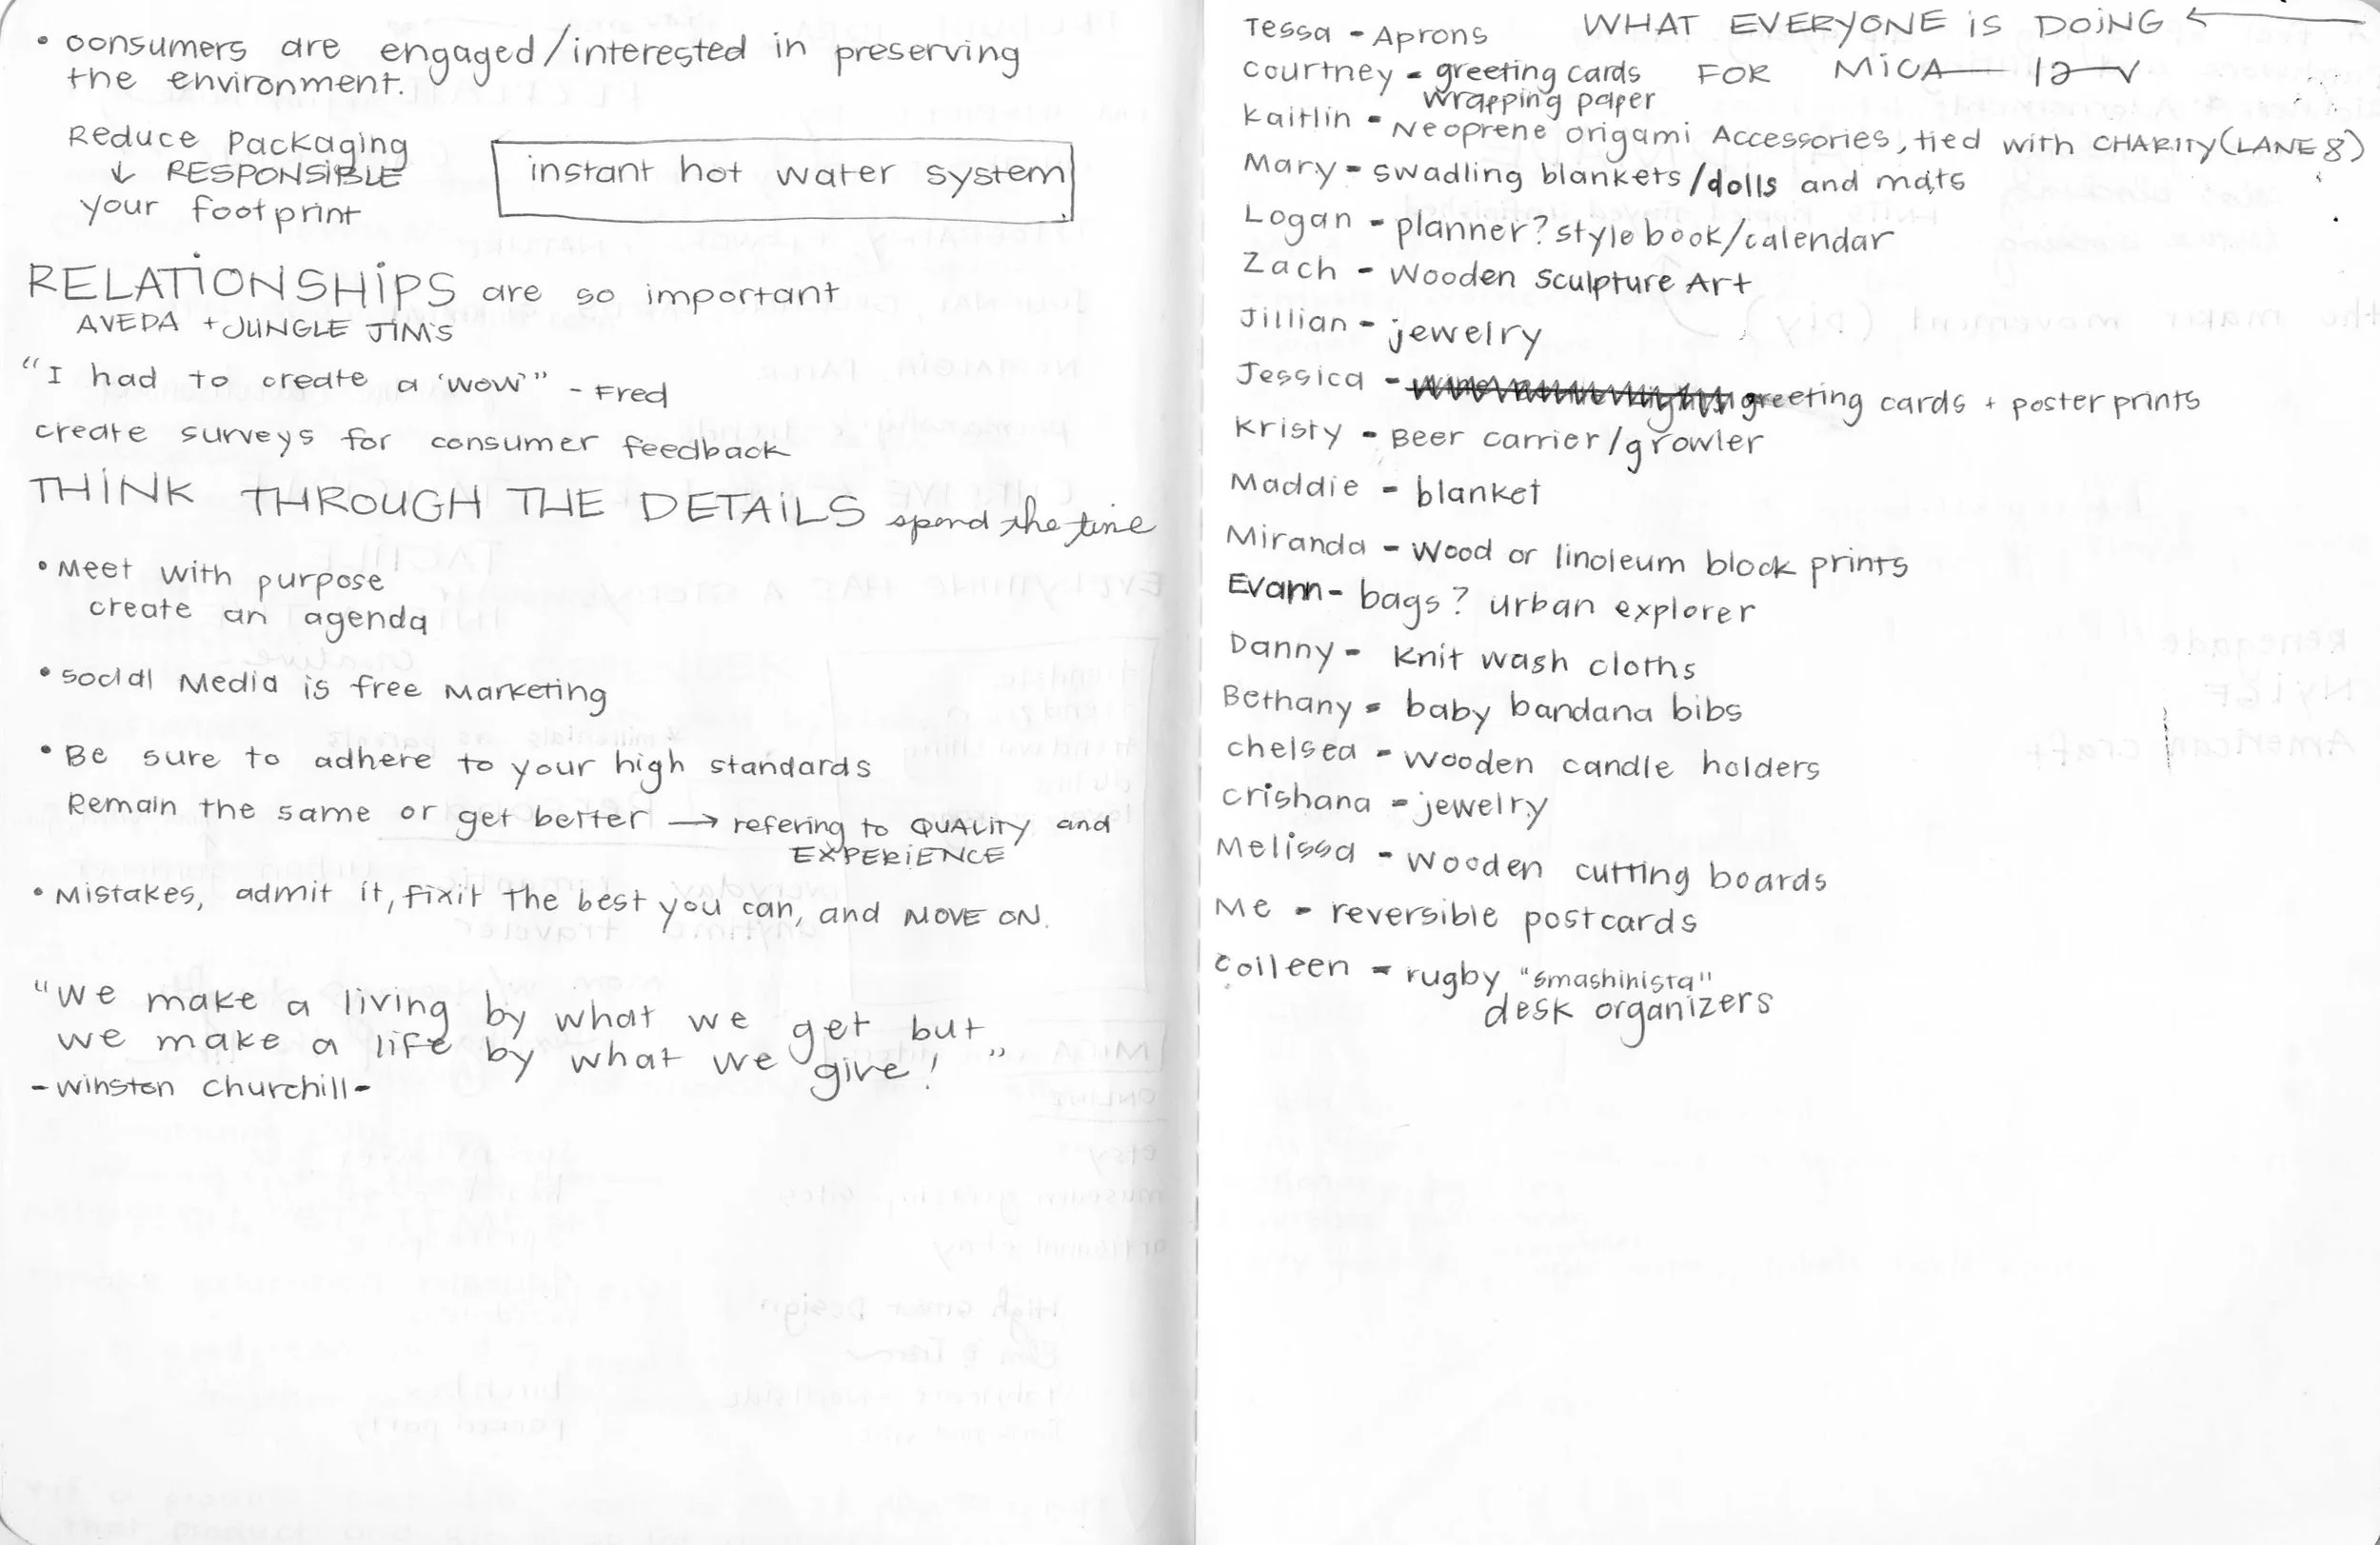 • consumers are engaged/interested in preserving
the environment.
Reduce Packaging
↓ RESPONSIBLE
your footprint
instant hot water system
RELATIONSHIPS are so important
AVEDA + JUNGLE JIM'S
"I had to create a 'wow'" - Fred
create surveys for consumer feedback
THINK THROUGH THE DETAILS spend the time
• Meet with purpose
create an agenda
• social Media is free Marketing
• Be sure to adhere to your high standards
Remain the same or get better → refering to QUALITY and
EXPERIENCE
• Mistakes, admit it, fixit the best you can, and MOVE ON.
"we make a living by what we get but
we make a life by what we give!"
- Winston Churchill -
WHAT EVERYONE IS DOING ←
FOR MICA 12/V
Tessa - Aprons
Courtney - greeting cards
wrapping paper
Kaitlin - Neoprene origami Accessories, tied with CHARITY (LANE 8)
Mary - swadling blankets/dolls and mats
Logan - planner? style book/calendar
Zach - Wooden Sculpture Art
Jillian - jewelry
Jessica - greeting cards + poster prints
Kristy - Beer carrier/growler
Maddie - blanket
Miranda - Wood or linoleum block prints
Evann - bags? urban explorer
Danny - Knit wash cloths
Bethany - baby bandana bibs
Chelsea - wooden candle holders
Crishana - jewelry
Melissa - Wooden cutting boards
Me - reversible postcards
Coileen - rugby "smashinista"
desk organizers